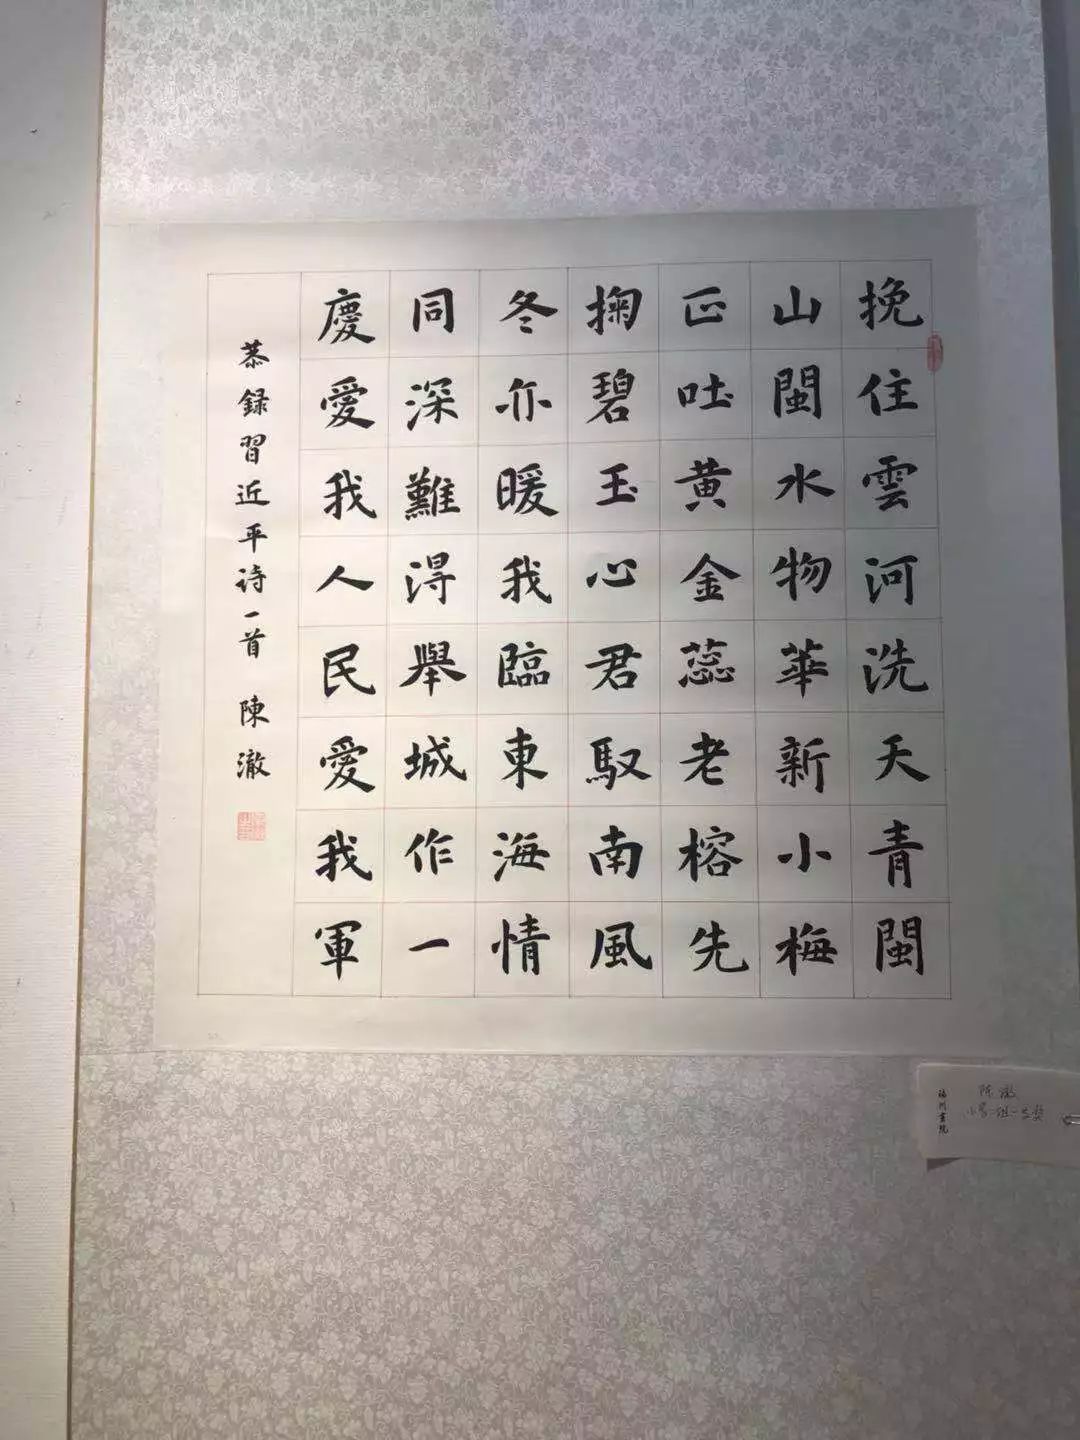 挽住雲河洗天青閩
山閩水物華新小梅
正吐黄金蕊老榕先
掬碧玉心君馭南風
冬亦暖我臨東海情
同深難淂舉城作一
慶愛我人民愛我軍
恭録習近平诗一首 陳澈
福州書院
陈澈
小学组一等奖